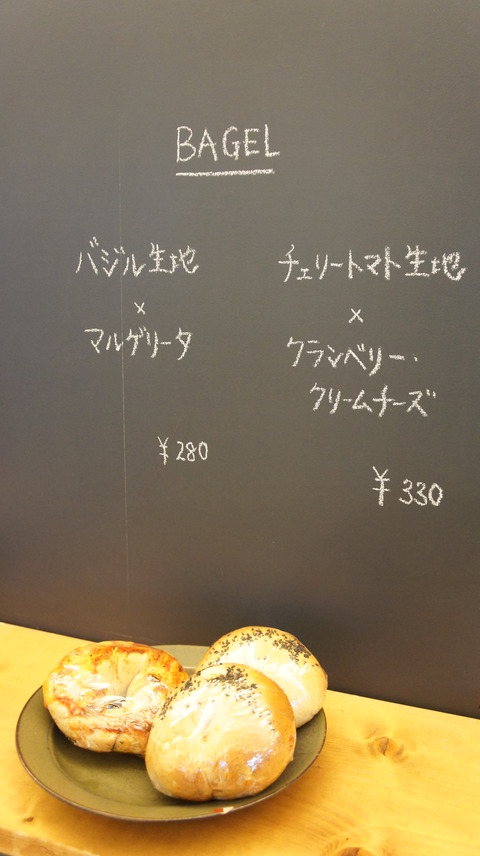 BAGEL
バジル生地
×
マルゲリータ
¥280
チェリートマト生地
×
クランベリー・
クリームチーズ
¥330